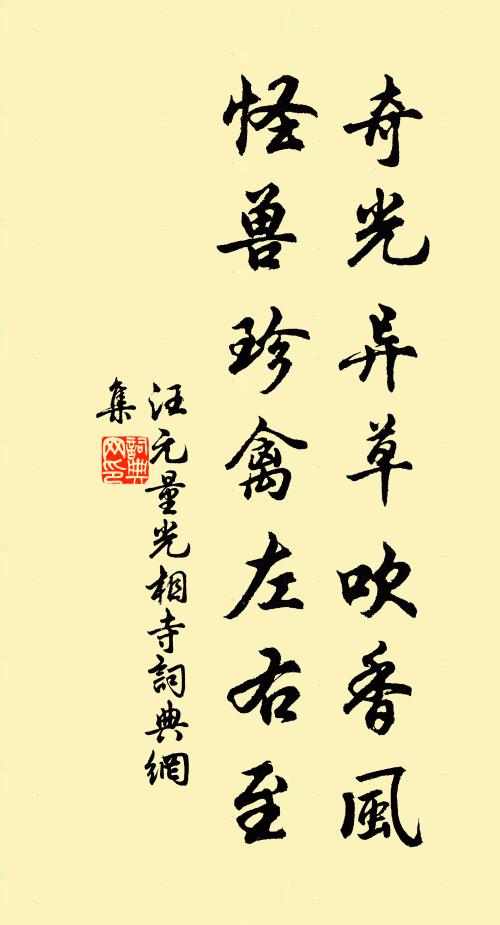 奇光异草吹香風
怪兽珍禽左右至
汪元量光相寺詞典網
集
詞典網印